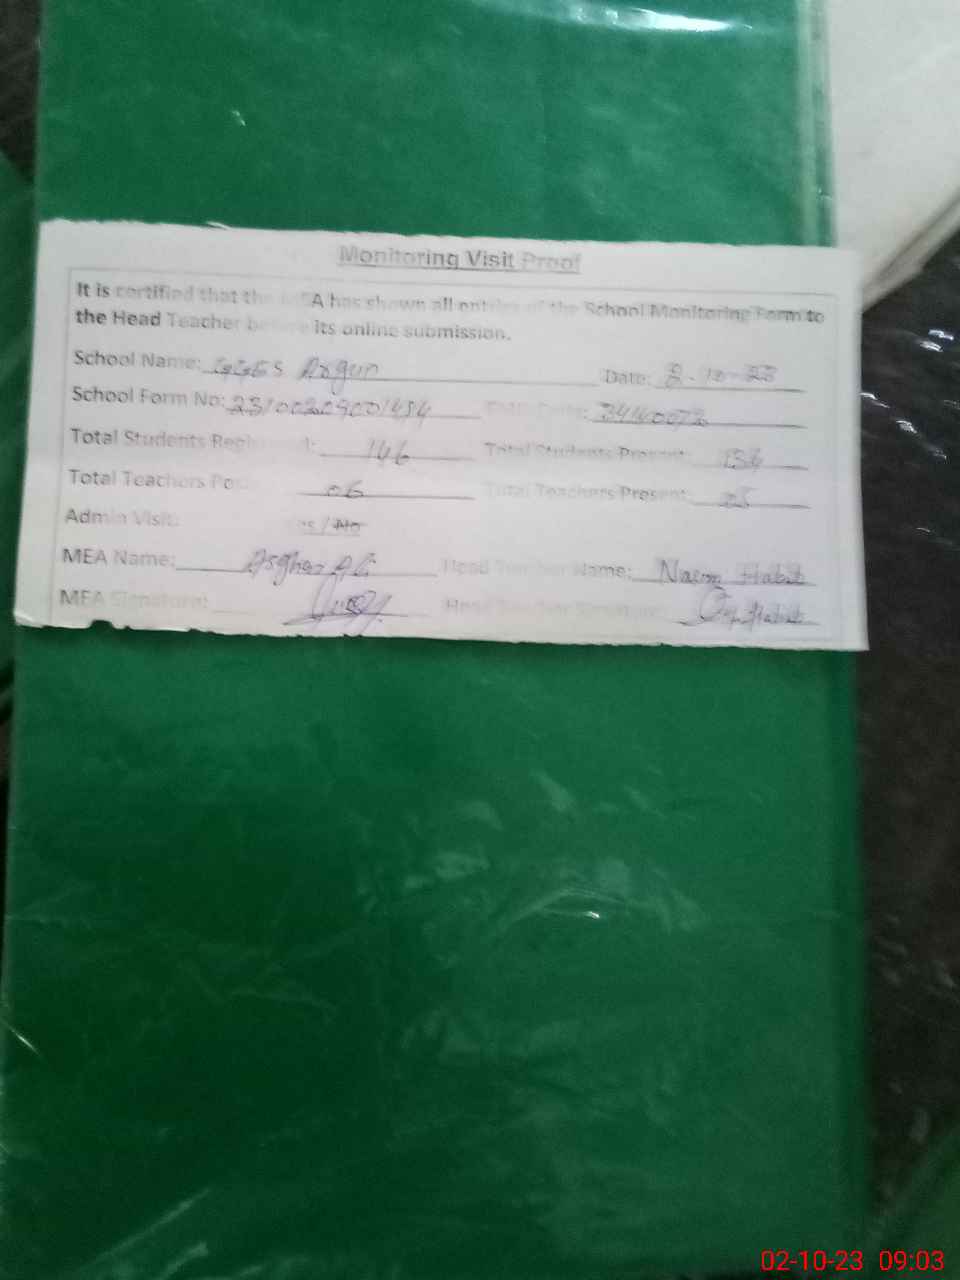 Monitoring Visit Proof
It is certified that the MEA has shown all entries of the School Monitoring Form to
the Head Teacher before its online submission.
School Name: GGES Argun Date: 2-10-23
School Form No: 23100209001454
Total Students Registered: 146 Total Students Present:
Total Teachers Post 06 Total Teachers Present: 05
Admin Visit: Yes/No
MEA Name: Asghar Ali Head Teacher Name: Habib
MEA Signature: Head Teacher Signature: Habib
02-10-23 09:03